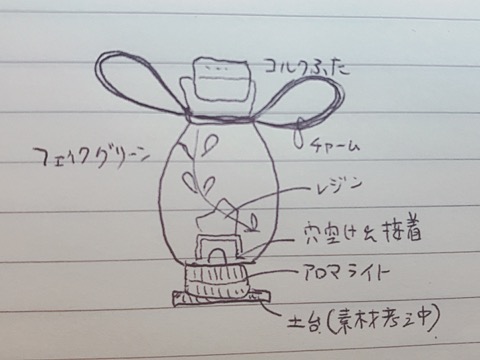 コルクふた
チャーム
フェイクグリーン
レジン
穴空け&接着
アロマライト
土台(素材考え中)